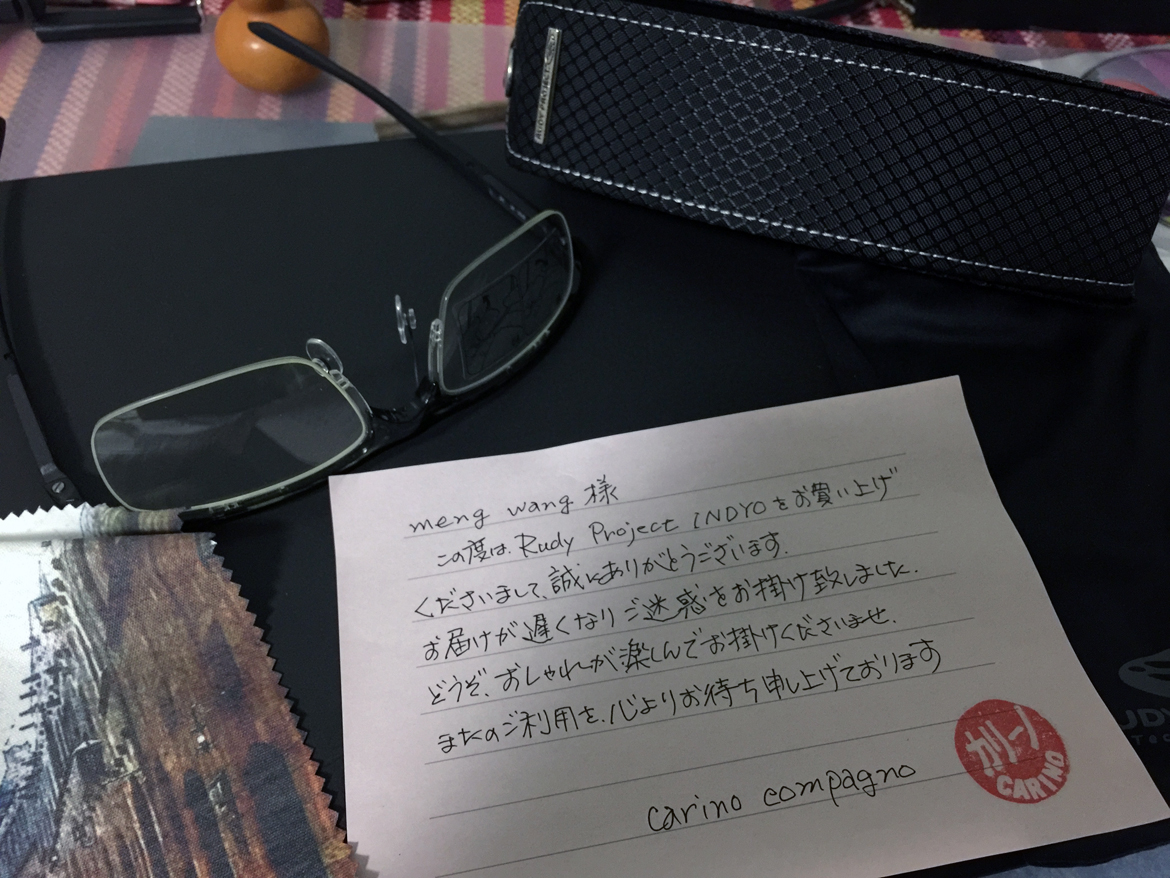 RUDY PROJECT
meng wang 様
この度は、Rudy Project INDYOをお買い上げ
くださいまして、誠にありがとうございます。
お届けが遅くなりご迷惑をお掛け致しました。
どうぞ、おしゃれが楽しんでお掛けくださいませ。
またのご利用を、心よりお待ち申し上げております
carino compagno
カリーノ
CARINO